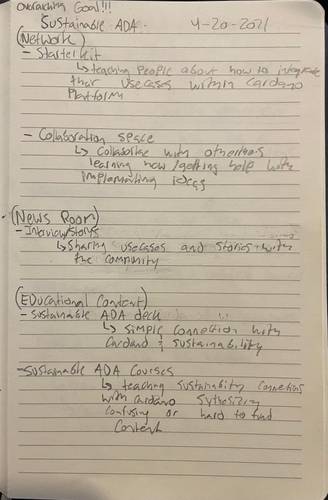 Overaching Goal!!!
Sustainable ADA. 4-20-2021
(Network)
- Starter kit
↳ teaching People about how to integrate
their usecases within Cardano
Platform
- Collaboration space
↳ Collaborate with others
learning how / getting help with
implementing ideas
(News Room)
- Interview/Storys
↳ Sharing usecases and stories with
the community
(Educational Content)
- sustainable ADA deck
↳ simple connection with
Cardano & sustainability
- Sustainable ADA Courses
↳ teaching sustainability connections
with Cardano sythesizing
confusing or hard to find
Content